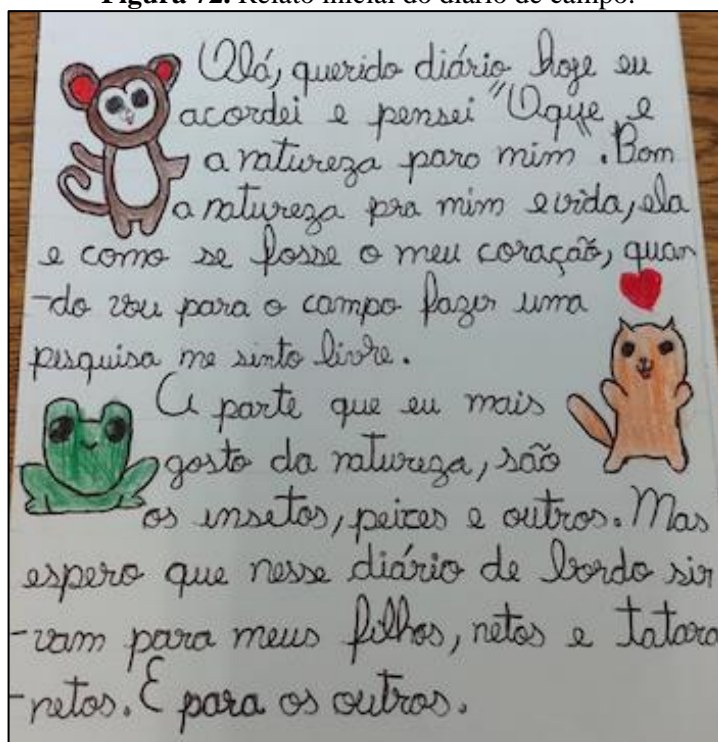 Figura 72. Relato inicial do diário de campo.
Olá, querido diário hoje eu
acordei e pensei "Oque e
a natureza paro mim". Bom
a natureza pra mim e vida, ela
e como se fosse o meu coração, quan
-do vou para o campo fazer uma
pesquisa me sinto livre.
A parte que eu mais
gosto da natureza, são
os insetos, peixes e outros. Mas
espero que nesse diário de bordo sir
-vam para meus filhos, netos e tatara
-netos. E para os outros.